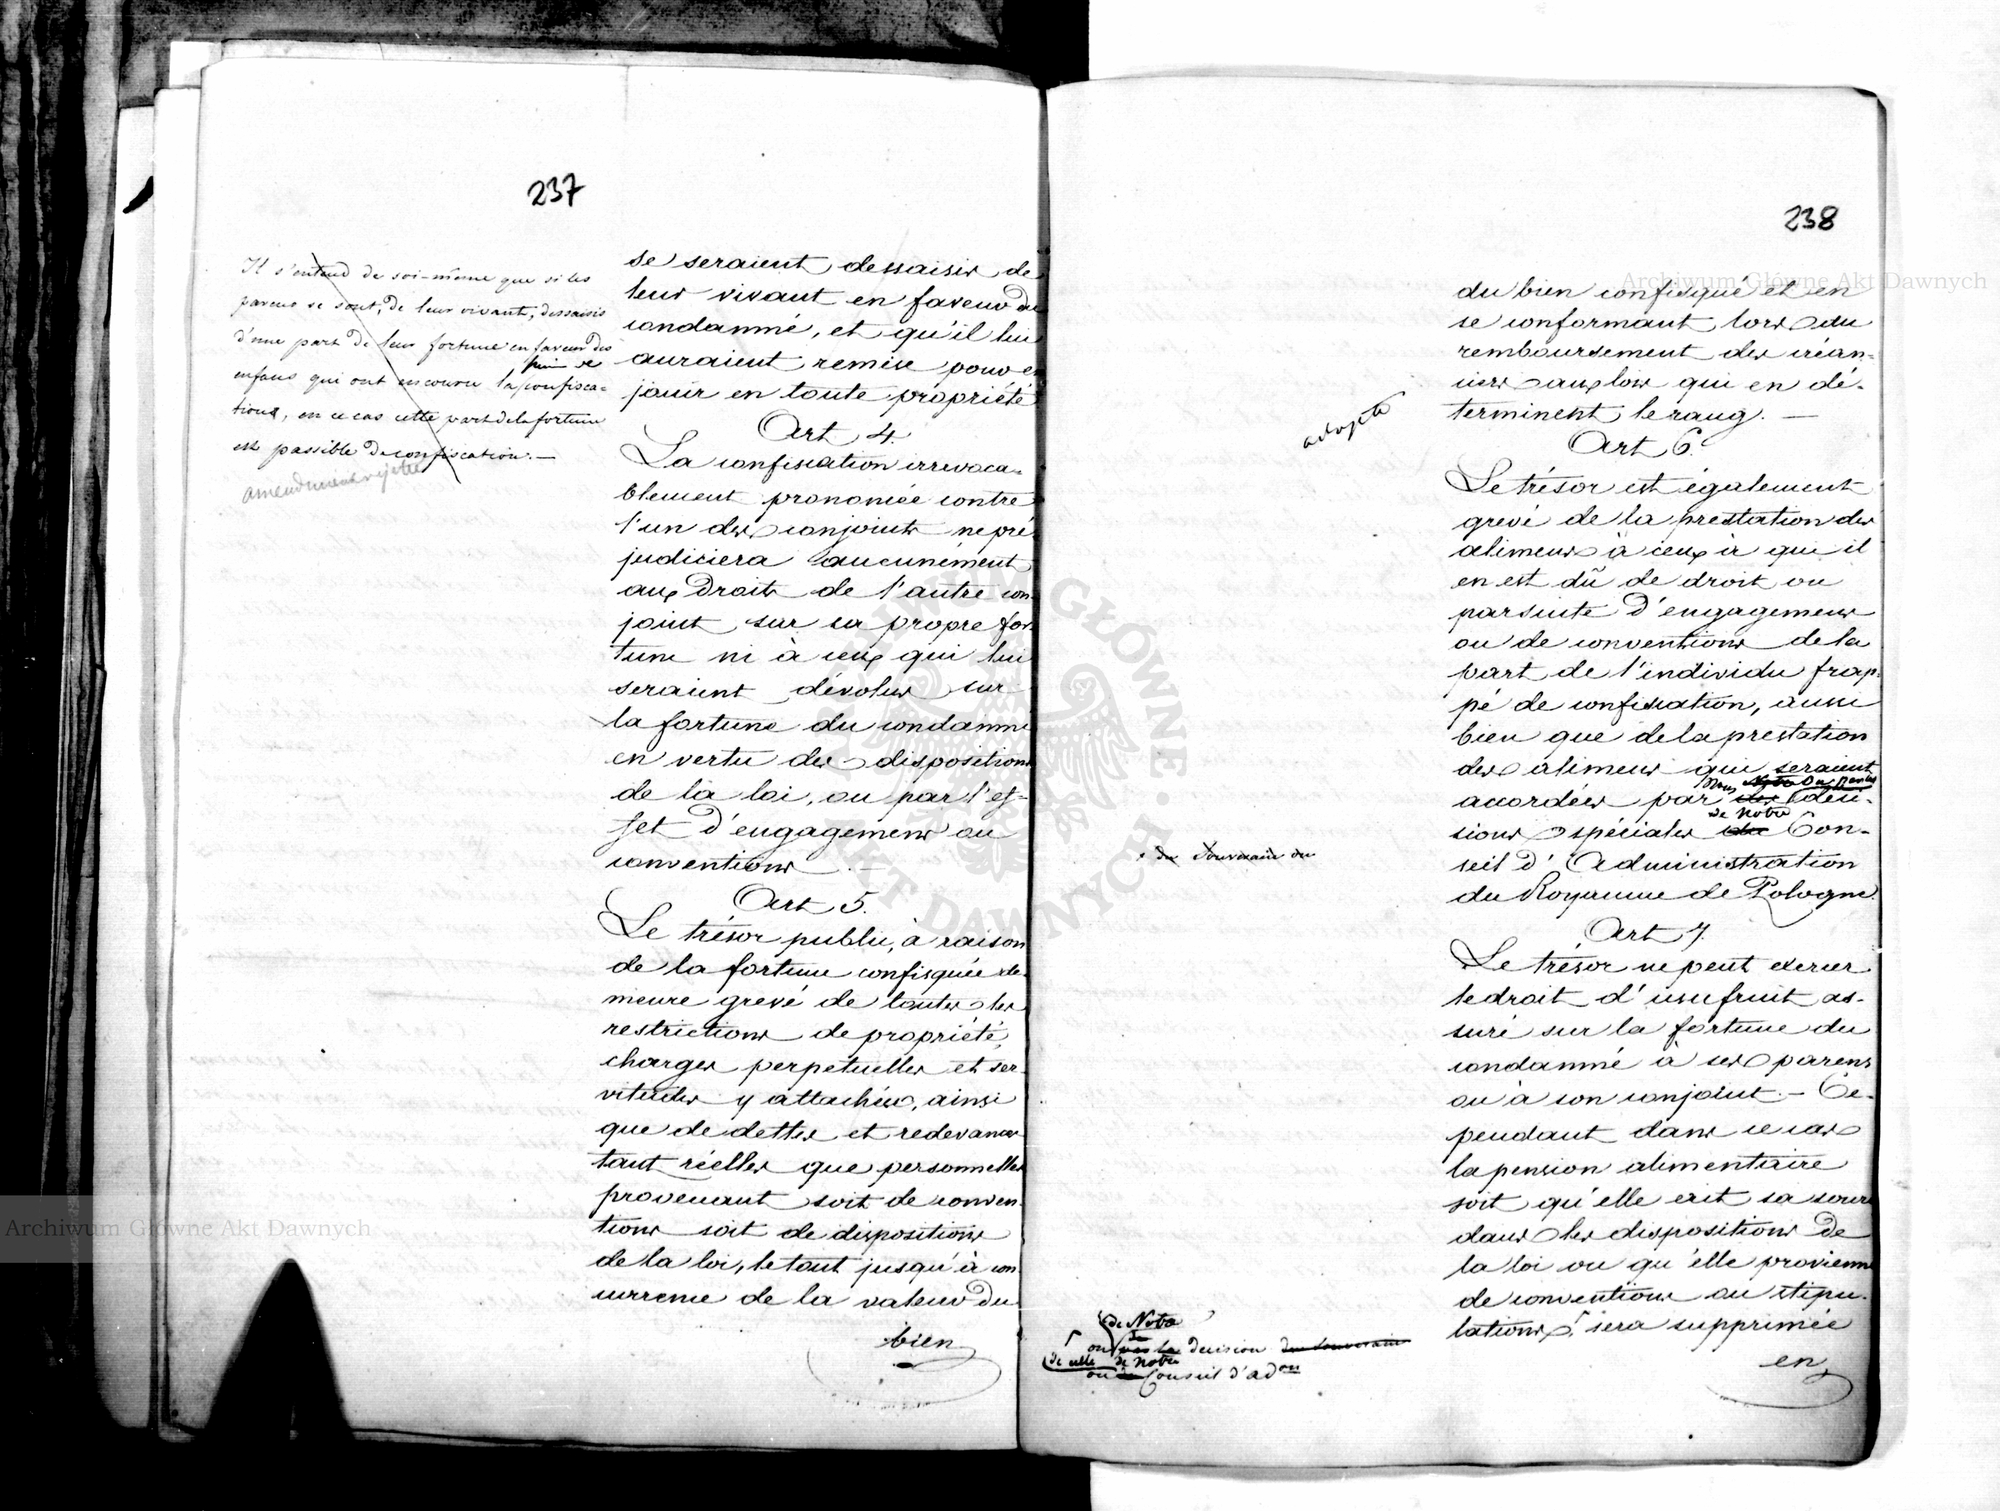 237
Il s'entend de soi-même que si les
parens se sont, de leur vivant, dessaisis
d'une part de leur fortune en faveur des
enfans qui ont encouru la confisca-
peine de
tion, en ce cas cette part de la fortune
est passible de confiscation. —
amendement rejeté
se seraient dessaisis de
leur vivant en faveur du
condamné, et qu'il lui
auraient remise pour en
jouir en toute propriété
Art 4.
La confiscation irrevoca-
blement prononcée contre
l'un des conjoints ne pré
judiciera aucunément
aux Droits de l'autre con-
joint sur sa propre for-
tune ni à ceux qui lui
seraient dévolus sur
la fortune du condamné
en vertu des dispositions
de la loi, ou par l'ef-
fet d'engagemens ou
conventions. —
Art 5.
Le trésor public, à raison
de la fortune confisquée de-
meure grevé de toutes les
restrictions de propriété,
charges perpetuelles et ser-
vitudes y attachées, ainsi
que de dettes et redevances
tant réelles que personnelles
provenant soit de conven-
tions soit de dispositions
de la loi, le tout jusqu'à con
currence de la valeur du
bien
238
du bien confisqué et en
se conformant lors du
remboursement des créan-
ciers aux lois qui en dé-
terminent le rang. —
adopté
Art 6.
Le trésor est également
grevé de la prestation des
alimens à ceux à qui il
en est dû de droit ou
par suite d'engagemens
ou de conventions de la
part de l'individu frap-
pé de confiscation, aussi
bien que de la prestation
des alimens qui seraient
Nous
accordées par des déci-
de Notre
sions spéciales du Con-
du Souverain ou
seil d'Administration
du Royaume de Pologne.
Art 7.
Le trésor ne peut exercer
le droit d'usufruit as-
suré sur la fortune du
condamné à ses parens
ou à son conjoint. — Ce-
pendant dans ce cas
la pension alimentaire
soit qu'elle ait sa source
dans les dispositions de
la loi ou qu'elle provienne
de conventions ou stipu-
lations, sera supprimée
de Notre
ou par la decision du Souverain
de celle de Notre
ou du Conseil d'adon
en
Archiwum Główne Akt Dawnych
Archiwum Główne Akt Dawnych
ARCHIWUM GŁÓWNE AKT DAWNYCH